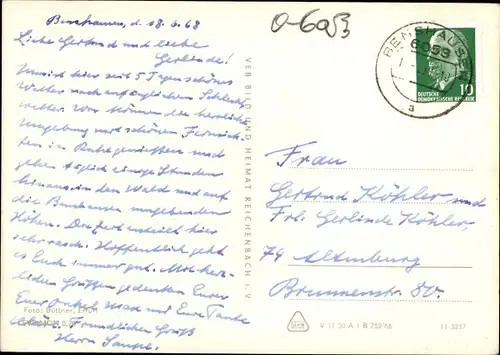 Benshausen, d. 18.6.68
Liebe Gertrud und liebe
Gerlinde!
hier seit 5 Tagen schönes
Wetter nach anfänglichem Schlecht-
wetter. Wir können die herrliche
Umgebung mit schönen Fernsich-
ten in Ruhe genießen und
gehen täglich einige Stunden
hinaus in den Wald und auf
die Benshausen umgebenden
Höhen. Die Zeit enteilt hier
sehr rasch. Hoffentlich geht
es Euch immer gut. Mit herz-
lichen Grüßen gedenken Eurer
Euer Onkel Max und Eure Tante
Freundlichen Gruß
Herm
Foto: Büttner, Erfurt
VEB BILD UND HEIMAT REICHENBACH i. V.
0-6053
BENSHAUSEN
6053
a
10
DEUTSCHE
DEMOKRATISCHE REPUBLIK
Frau
Gertrud Köhler und
Frl. Gerlinde Köhler,
74 Altenburg
Brunnenstr. 80.
V 11 20 A 1 B 752/66
11-3237